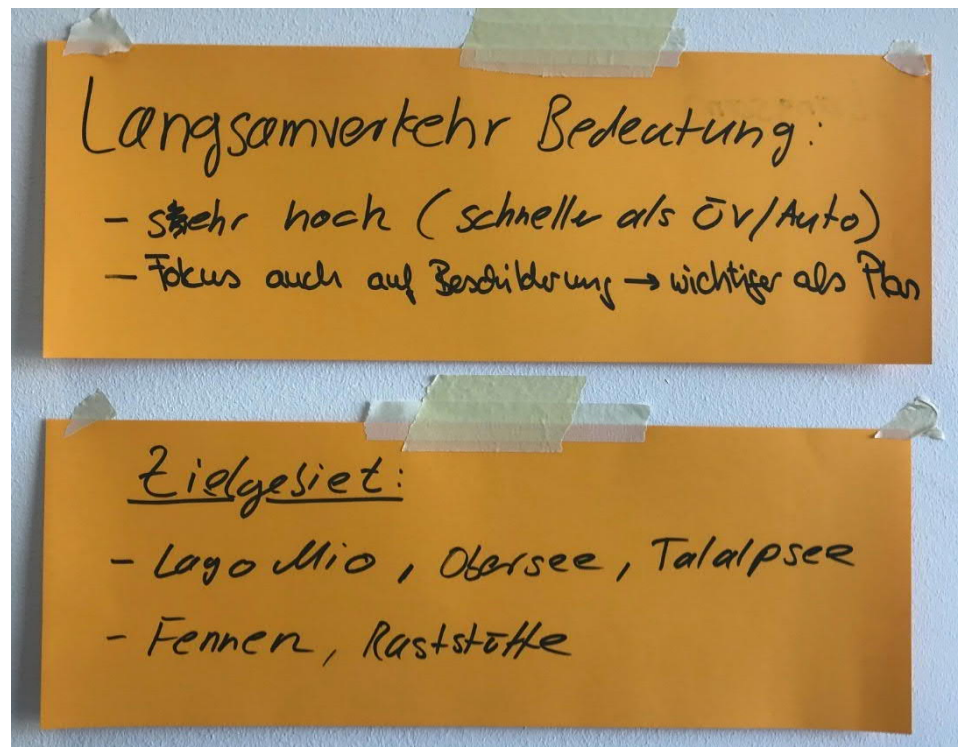 Langsamverkehr Bedeutung:
- sehr hoch (schneller als ÖV/Auto)
- Fokus auch auf Beschilderung → wichtiger als Plan
Zielgebiet:
- Lago Mio, Obersee, Talalpsee
- Fennen, Raststätte